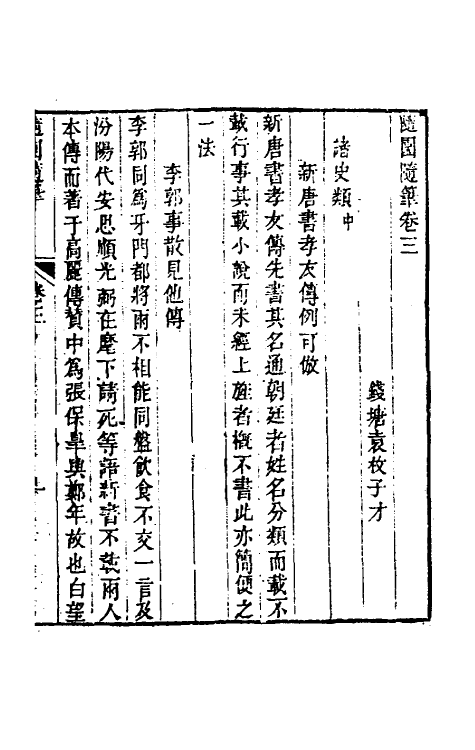 隨園隨筆卷三
錢塘袁枚子才
諸史類中
新唐書孝友傳例可倣
新唐書孝友傳先書其名通朝廷者姓名分類而載不
載行事其載小說而未經上旌者概不書此亦簡便之
一法
李郭事散見他傳
李郭同為牙門都將兩不相能同盤飲食不交一言及
汾陽代安思順光弼在麾下請死等語新書不裝兩人
本傳而著于高麗傳贊中為張保臯與鄭年故也白望
隨園隨筆